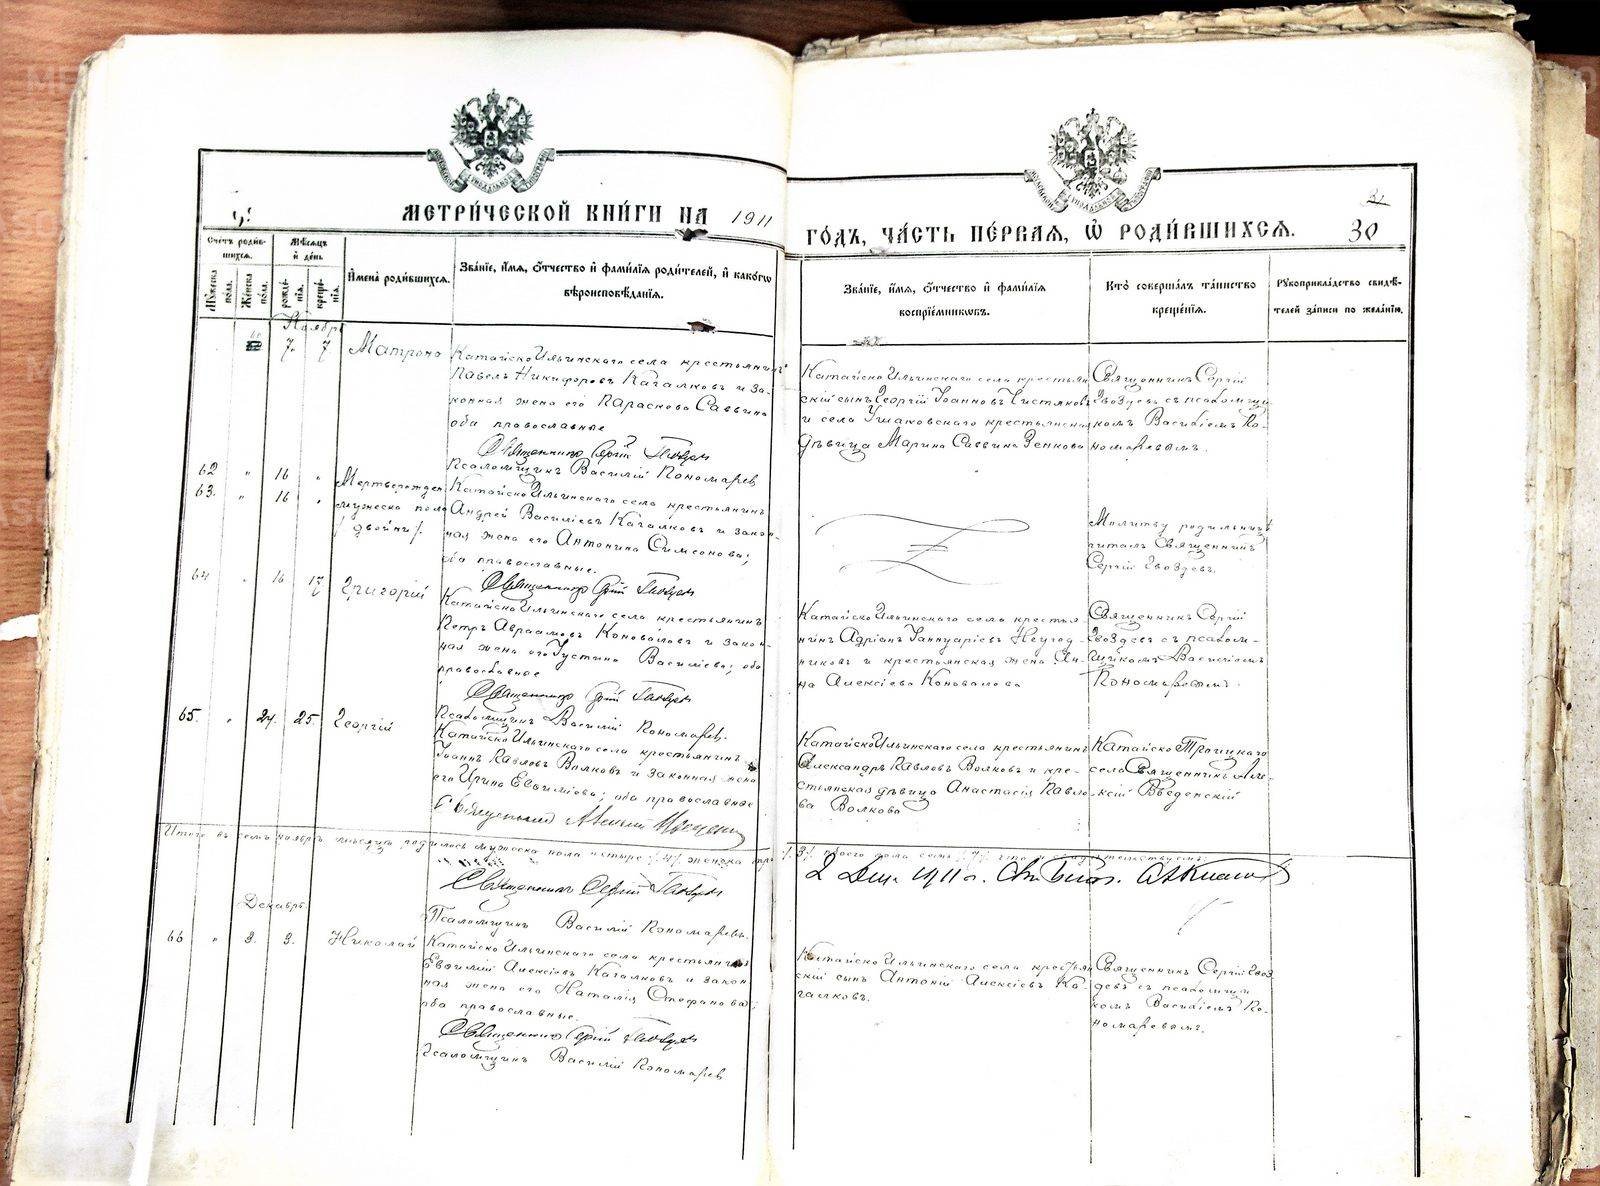 МЕТРИ́ЧЕСКОЙ КНИ́ГИ НА 1911
ГО́ДЪ, ЧА́СТЬ ПЕ́РВАЯ, Ѡ РОДИ́ВШИХСЯ.
30
Сче́тъ роди́в-
шихся.
Мѣ́сяцъ
и҆ де́нь
Му́жеска по́ла.
Же́нска по́ла.
рожде́-
нїя.
креще́-
нїя.
И҆мена̀ роди́вшихся.
Зва́нїе, и҆́мя, ѻ҆́тчество и҆ фами́лїя роди́телей, и҆ како́гѡ
вѣроисповѣ́данїя.
Зва́нїе, и҆́мя, ѻ҆́тчество и҆ фами́лїя
воспрїе́мникѡвъ.
Кто̀ соверша́лъ та́инство
креще́нїя.
Рукоприкла́дство свидѣ́-
телей за́писи по жела́нїю.
Ноября
7. 7 Матрона
Катайско Ильинскаго села крестьянинъ
Павелъ Никифоровъ Кагалковъ и за-
конная жена его Параскева Саввина
оба православные
Священникъ Сергій Гвоздевъ
Псаломщикъ Василій Пономаревъ
Катайско Ильинскаго села крестьян-
скій сынъ Георгій Іоанновъ Чистяковъ
и села Ушаковскаго крестьянская
дѣвица Марина Саввина Зенкова
Священникъ Сергій
Гвоздевъ съ псаломщи-
комъ Василіемъ По-
номаревымъ.
62 " 16 "
63. " 16 "
Мертворожден
мужеска пола
/двойни/.
Катайско Ильинскаго села крестьянинъ
Андрей Василіевъ Кагалковъ и закон-
ная жена его Антонина Симеонова;
оба православные.
Священникъ Сергій Гвоздевъ
Молитву родильницѣ
читалъ Священникъ
Сергій Гвоздевъ.
64 " 16 17 Григорій
Катайско Ильинскаго села крестьянинъ
Петръ Авраамовъ Коноваловъ и закон-
ная жена его Іустина Василіева; оба
православные
Священникъ Сергій Гвоздевъ
Псаломщикъ Василій Пономаревъ.
Катайско Ильинскаго села крестья-
нинъ Адріанъ Іаннуаріевъ Неугод-
никовъ и крестьянская жена Ан-
на Алексіева Коновалова
Священникъ Сергій
Гвоздевъ съ псалом-
щикомъ Василіемъ
Пономаревымъ.
65. " 24. 25. Георгій
Катайско Ильинскаго села крестьянинъ
Іоаннъ Павловъ Волковъ и законная жена
его Ирина Евѳиміева; оба православные
Священникъ Алексій Введенскій
Катайско Ильинскаго села крестьянинъ
Александръ Павловъ Волковъ и кре-
стьянская дѣвица Анастасія Павло-
ва Волкова
Катайско Троицкаго
села Священникъ Але-
ксій Введенскій
Итого въ семъ ноябрѣ мѣсяцѣ родилось мужеска пола четыре /4/ женска три /3/ обоего пола семь /7/ что и свидѣтельствуемъ:
Священникъ Сергій Гвоздевъ
Псаломщикъ Василій Пономаревъ.
2 Дек. 1911 г.
Декабрь
66 " 3. 3. Николай
Катайско Ильинскаго села крестьянинъ
Евѳимій Алексіевъ Кагалковъ и закон-
ная жена его Наталія Стефанова;
оба православные.
Священникъ Сергій Гвоздевъ
Псаломщикъ Василій Пономаревъ
Катайско Ильинскаго села крестьян-
скій сынъ Антоній Алексіевъ Ка-
галковъ.
Священникъ Сергій Гвоз-
девъ съ псаломщи-
комъ Василіемъ По-
номаревымъ.